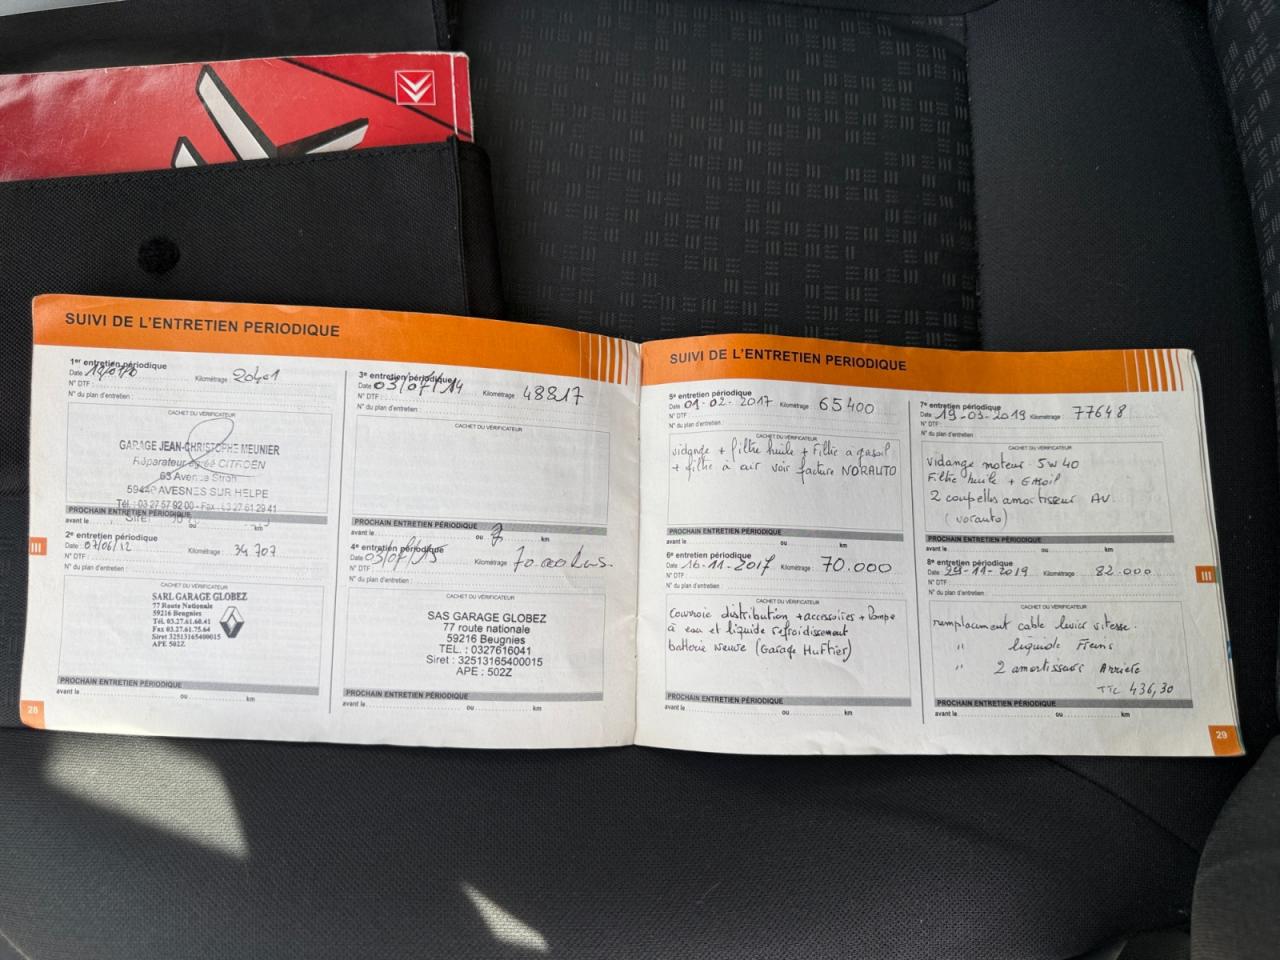 SUIVI DE L'ENTRETIEN PERIODIQUE
1er entretien périodique
Date Kilométrage 20401
N° DTF :
N° du plan d'entretien :
CACHET DU VÉRIFICATEUR
GARAGE JEAN-CHRISTOPHE MEUNIER
Réparateur agréé CITROËN
63 Avenue Stroh
59440 AVESNES SUR HELPE
Tél. : 03 27 57 92 00 - Fax : 03 27 61 29 41
Siret
PROCHAIN ENTRETIEN PÉRIODIQUE
avant le ou km
2e entretien périodique
Date 07/06/12 Kilométrage : 34707
N° DTF :
N° du plan d'entretien :
CACHET DU VÉRIFICATEUR
SARL GARAGE GLOBEZ
77 Route Nationale
59216 Beugnies
Tél. 03.27.61.60.41
Fax 03.27.61.75.64
Siret 32513165400015
APE 502Z
PROCHAIN ENTRETIEN PÉRIODIQUE
avant le ou km
28
3e entretien périodique
Date 03/07/14 Kilométrage 48817
N° DTF :
N° du plan d'entretien :
CACHET DU VÉRIFICATEUR
PROCHAIN ENTRETIEN PÉRIODIQUE
avant le ou km
4e entretien périodique
Date 03/07/15 Kilométrage 70.000 kms.
N° du plan d'entretien :
CACHET DU VÉRIFICATEUR
SAS GARAGE GLOBEZ
77 route nationale
59216 Beugnies
TEL. : 0327616041
Siret : 32513165400015
APE : 502Z
PROCHAIN ENTRETIEN PÉRIODIQUE
avant le ou km
III
SUIVI DE L'ENTRETIEN PERIODIQUE
5e entretien périodique
Date 01-02-2017 Kilométrage : 65400
N° DTF
N° du plan d'entretien :
CACHET DU VÉRIFICATEUR
vidange + filtre huile + Filtre à gasoil
+ filtre à air voir facture NORAUTO
PROCHAIN ENTRETIEN PÉRIODIQUE
avant le ou km
6e entretien périodique
Date 16-11-2017 Kilométrage : 70.000
N° DTF :
N° du plan d'entretien :
CACHET DU VÉRIFICATEUR
Courroie distribution + accessoires + Pompe
à eau et liquide refroidissement
batterie neuve (Garage Huftier)
PROCHAIN ENTRETIEN PÉRIODIQUE
avant le ou km
7e entretien périodique
Date 19-03-2019 Kilométrage : 77648
N° DTF
N° du plan d'entretien :
CACHET DU VÉRIFICATEUR
Vidange moteur 5W40
Filtre huile + Gasoil
2 coupelles amortisseur AV
PROCHAIN ENTRETIEN PÉRIODIQUE
avant le ou km
8e entretien périodique
Date 29-11-2019 Kilométrage : 82.000
N° DTF :
N° du plan d'entretien :
CACHET DU VÉRIFICATEUR
remplacement cable levier vitesse.
" liquide Freins
" 2 amortisseurs Arrière
TTC 436,30
PROCHAIN ENTRETIEN PÉRIODIQUE
avant le ou km
III
29